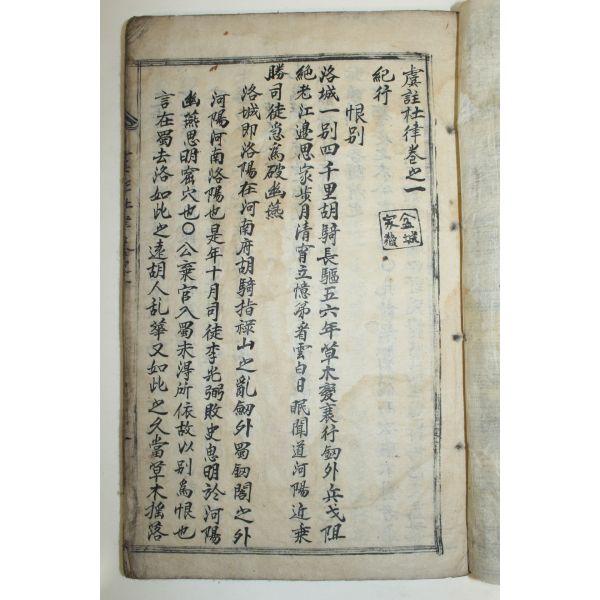 虞註杜律卷之一
紀行
恨別
洛城一別四千里胡騎長驅五六年草木變衰行劒外兵戈阻
絕老江邊思家步月清宵立憶弟看雲白日眠聞道河陽近乗
勝司徒急爲破幽燕
洛城即洛陽在河南府胡騎指祿山之亂劒外蜀劒閣之外
河陽河南洛陽也是年十月司徒李光弼敗史思明於河陽
幽燕思明窟穴也〇公棄官入蜀未淂所依故以别爲恨也
言在蜀去洛如此之遠胡人乱華又如此之久當草木摇落